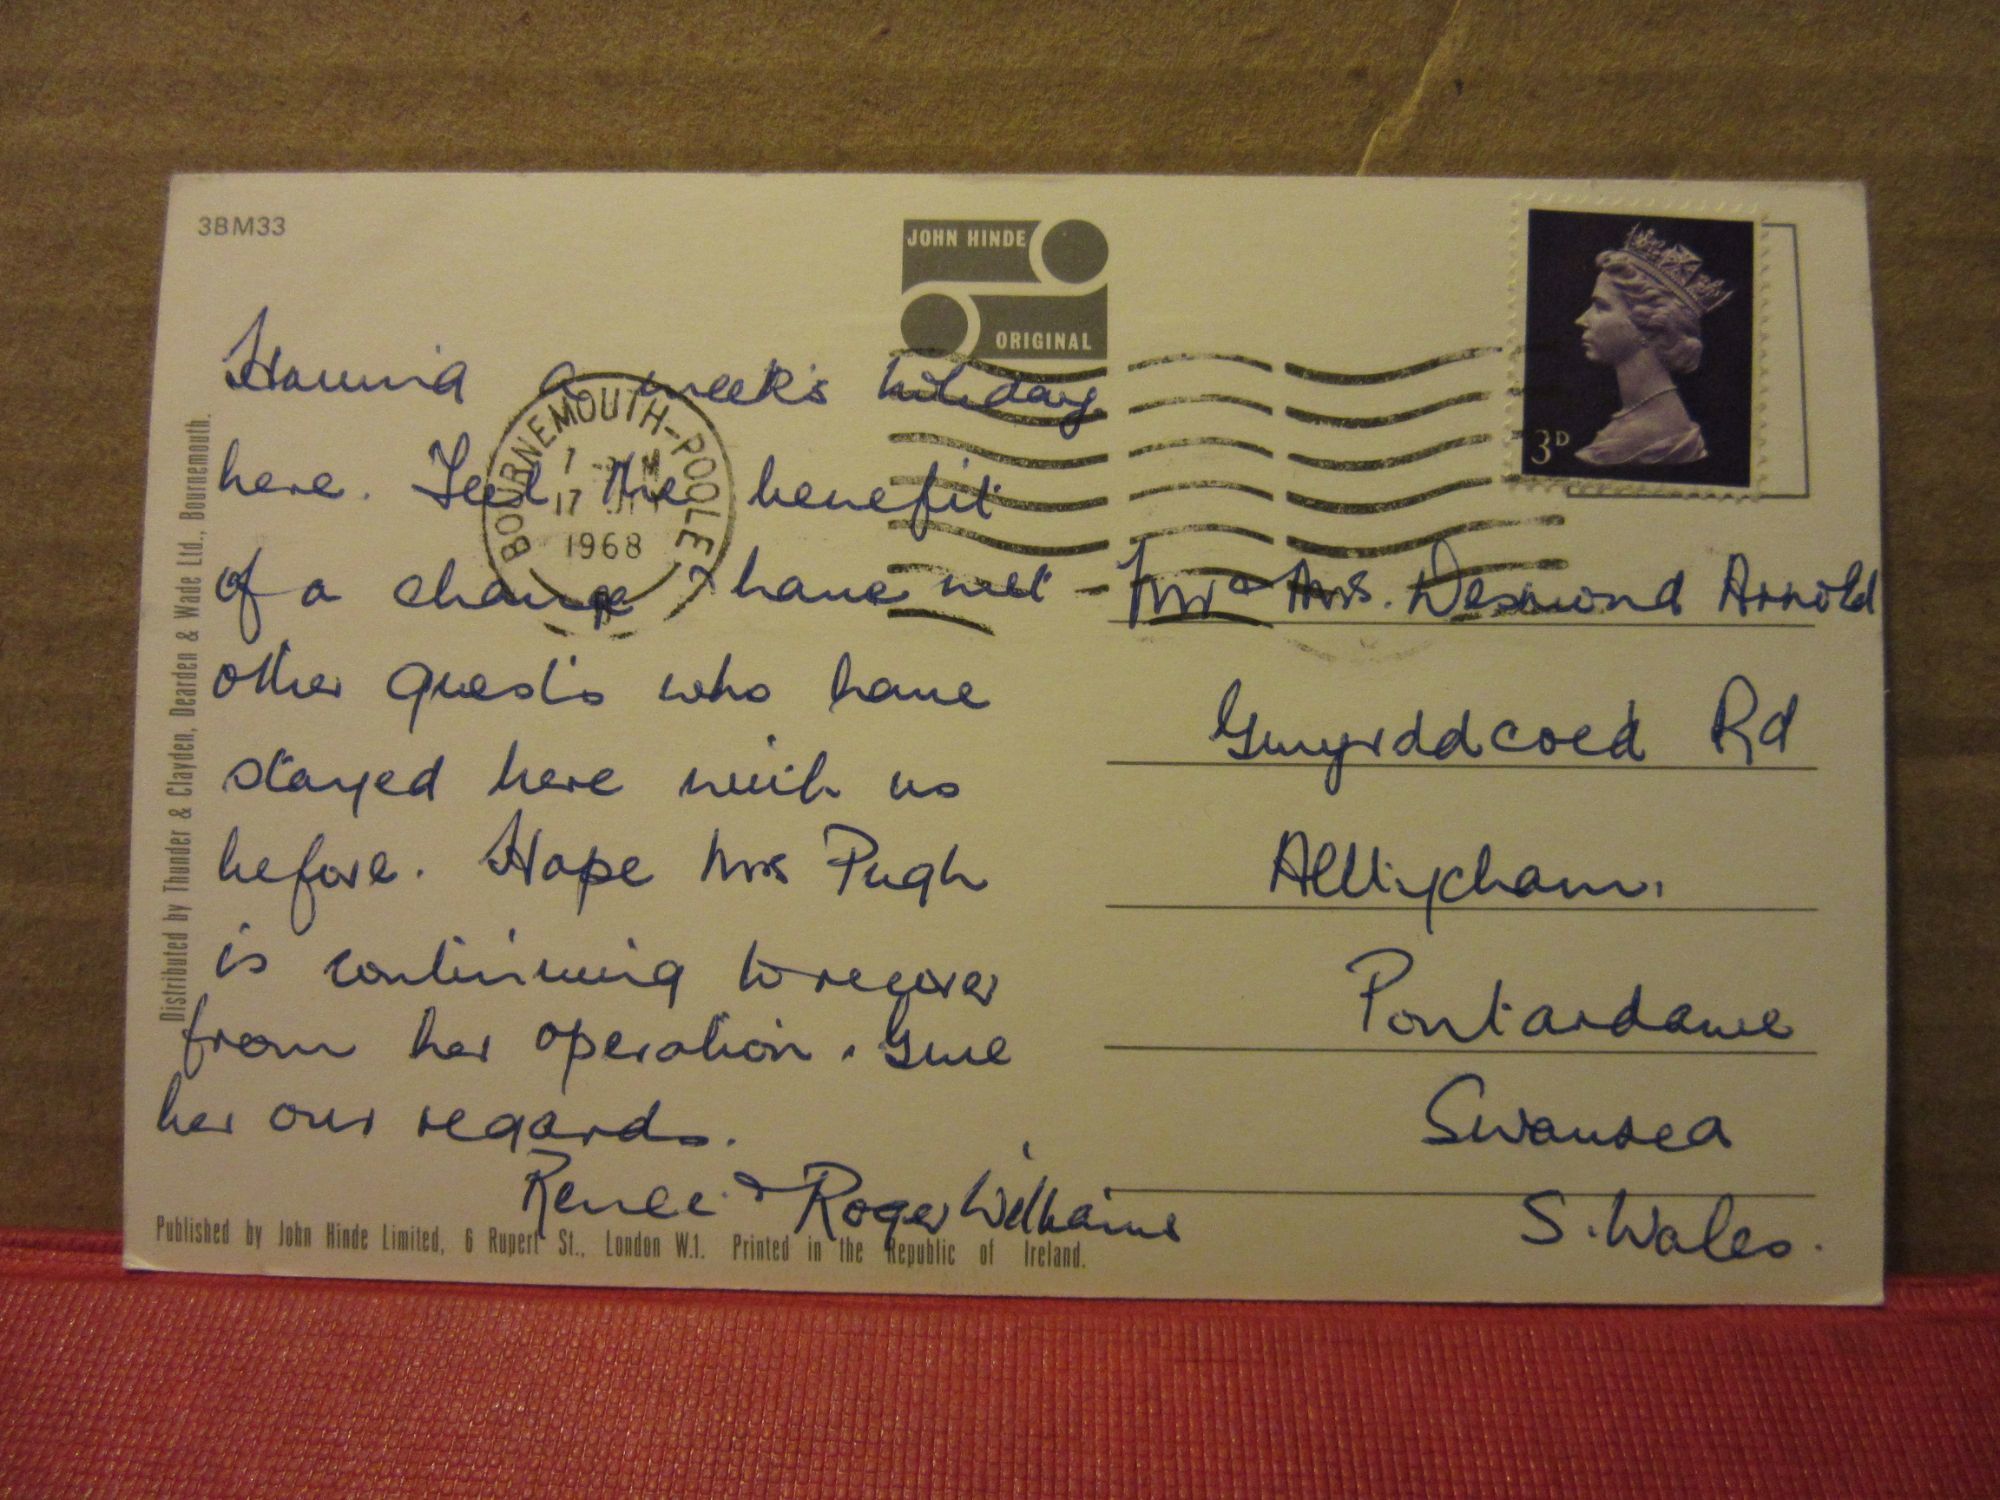 3BM33
JOHN HINDE
ORIGINAL
3D
BOURNEMOUTH-POOLE
17
1968
Having a week's holiday
here. Feel the benefit
of a change & have met
other guests who have
stayed here with us
before. Hope Mrs Pugh
is continuing to recover
from her operation. Give
her our regards.
Renee & Roger Williams
Mr & Mrs. Desmond Arnold
Gwyrddcoed Rd
Alltycham.
Pontardawe
Swansea
S. Wales.
Distributed by Thunder & Clayden, Dearden & Wade Ltd., Bournemouth.
Published by John Hinde Limited, 6 Rupert St., London W.1. Printed in the Republic of Ireland.